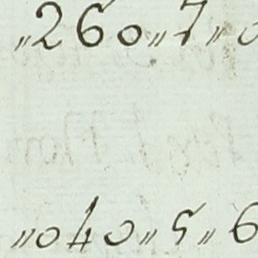 „260„7„0
„040„5„6